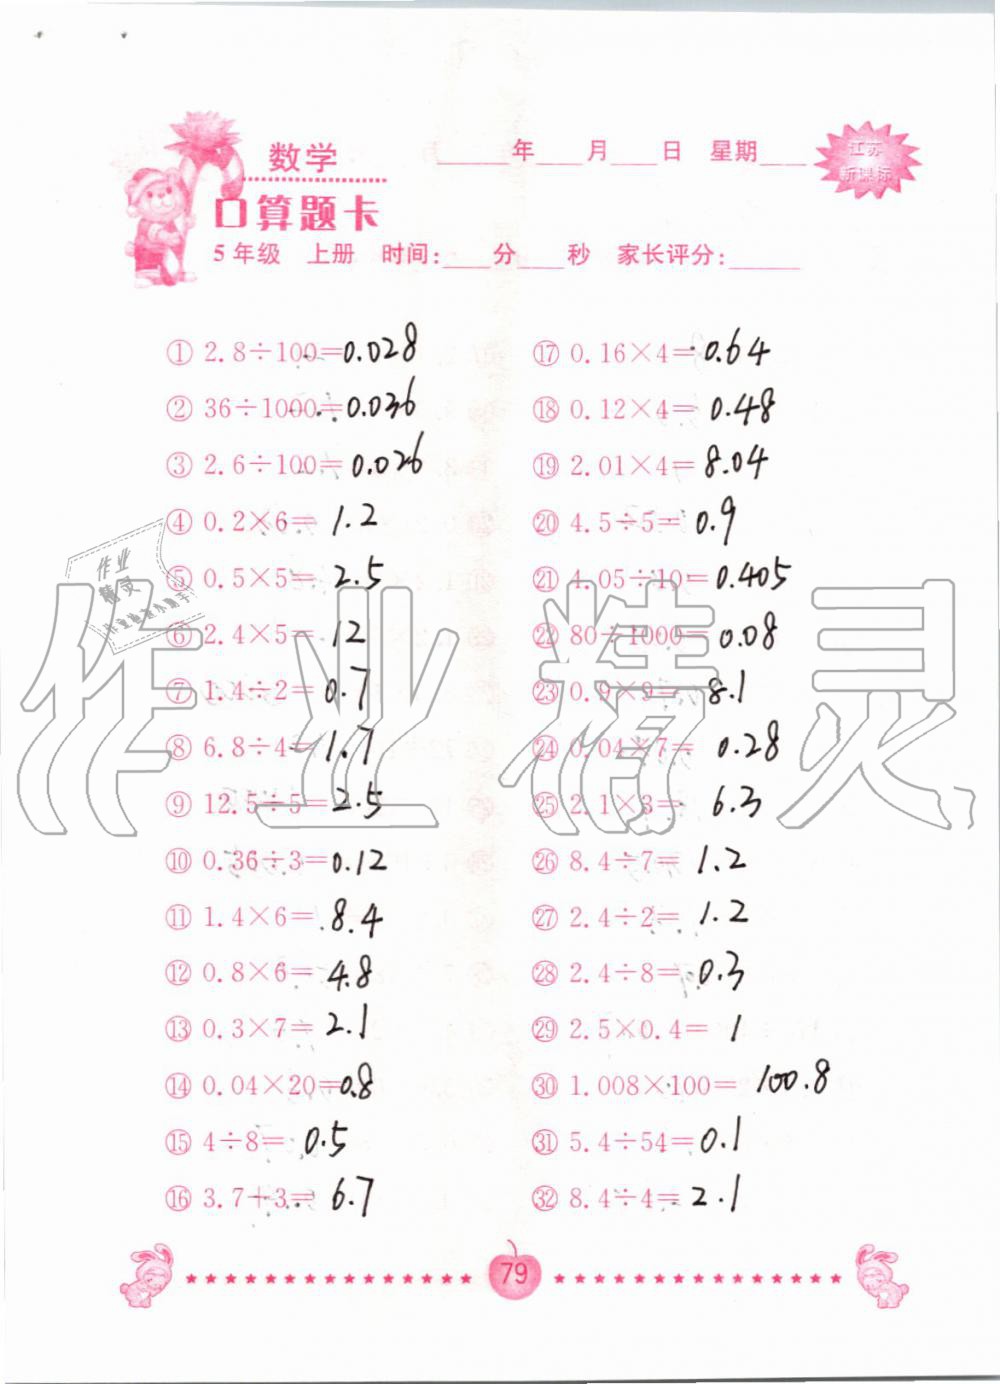 数学
____年____月____日 星期____
江苏
新课标
口算题卡
5年级 上册 时间:____分____秒 家长评分:____
① 2.8÷100=0.028
② 36÷1000=0.036
③ 2.6÷100=0.026
④ 0.2×6=1.2
⑤ 0.5×5=2.5
⑥ 2.4×5=12
⑦ 1.4÷2=0.7
⑧ 6.8÷4=1.7
⑨ 12.5÷5=2.5
⑩ 0.36÷3=0.12
⑪ 1.4×6=8.4
⑫ 0.8×6=4.8
⑬ 0.3×7=2.1
⑭ 0.04×20=0.8
⑮ 4÷8=0.5
⑯ 3.7+3=6.7
⑰ 0.16×4=0.64
⑱ 0.12×4=0.48
⑲ 2.01×4=8.04
⑳ 4.5÷5=0.9
㉑ 4.05÷10=0.405
㉒ 80÷1000=0.08
㉓ 0.9×9=8.1
㉔ 0.04×7=0.28
㉕ 2.1×3=6.3
㉖ 8.4÷7=1.2
㉗ 2.4÷2=1.2
㉘ 2.4÷8=0.3
㉙ 2.5×0.4=1
㉚ 1.008×100=100.8
㉛ 5.4÷54=0.1
㉜ 8.4÷4=2.1
作业
精灵
作业精灵
79